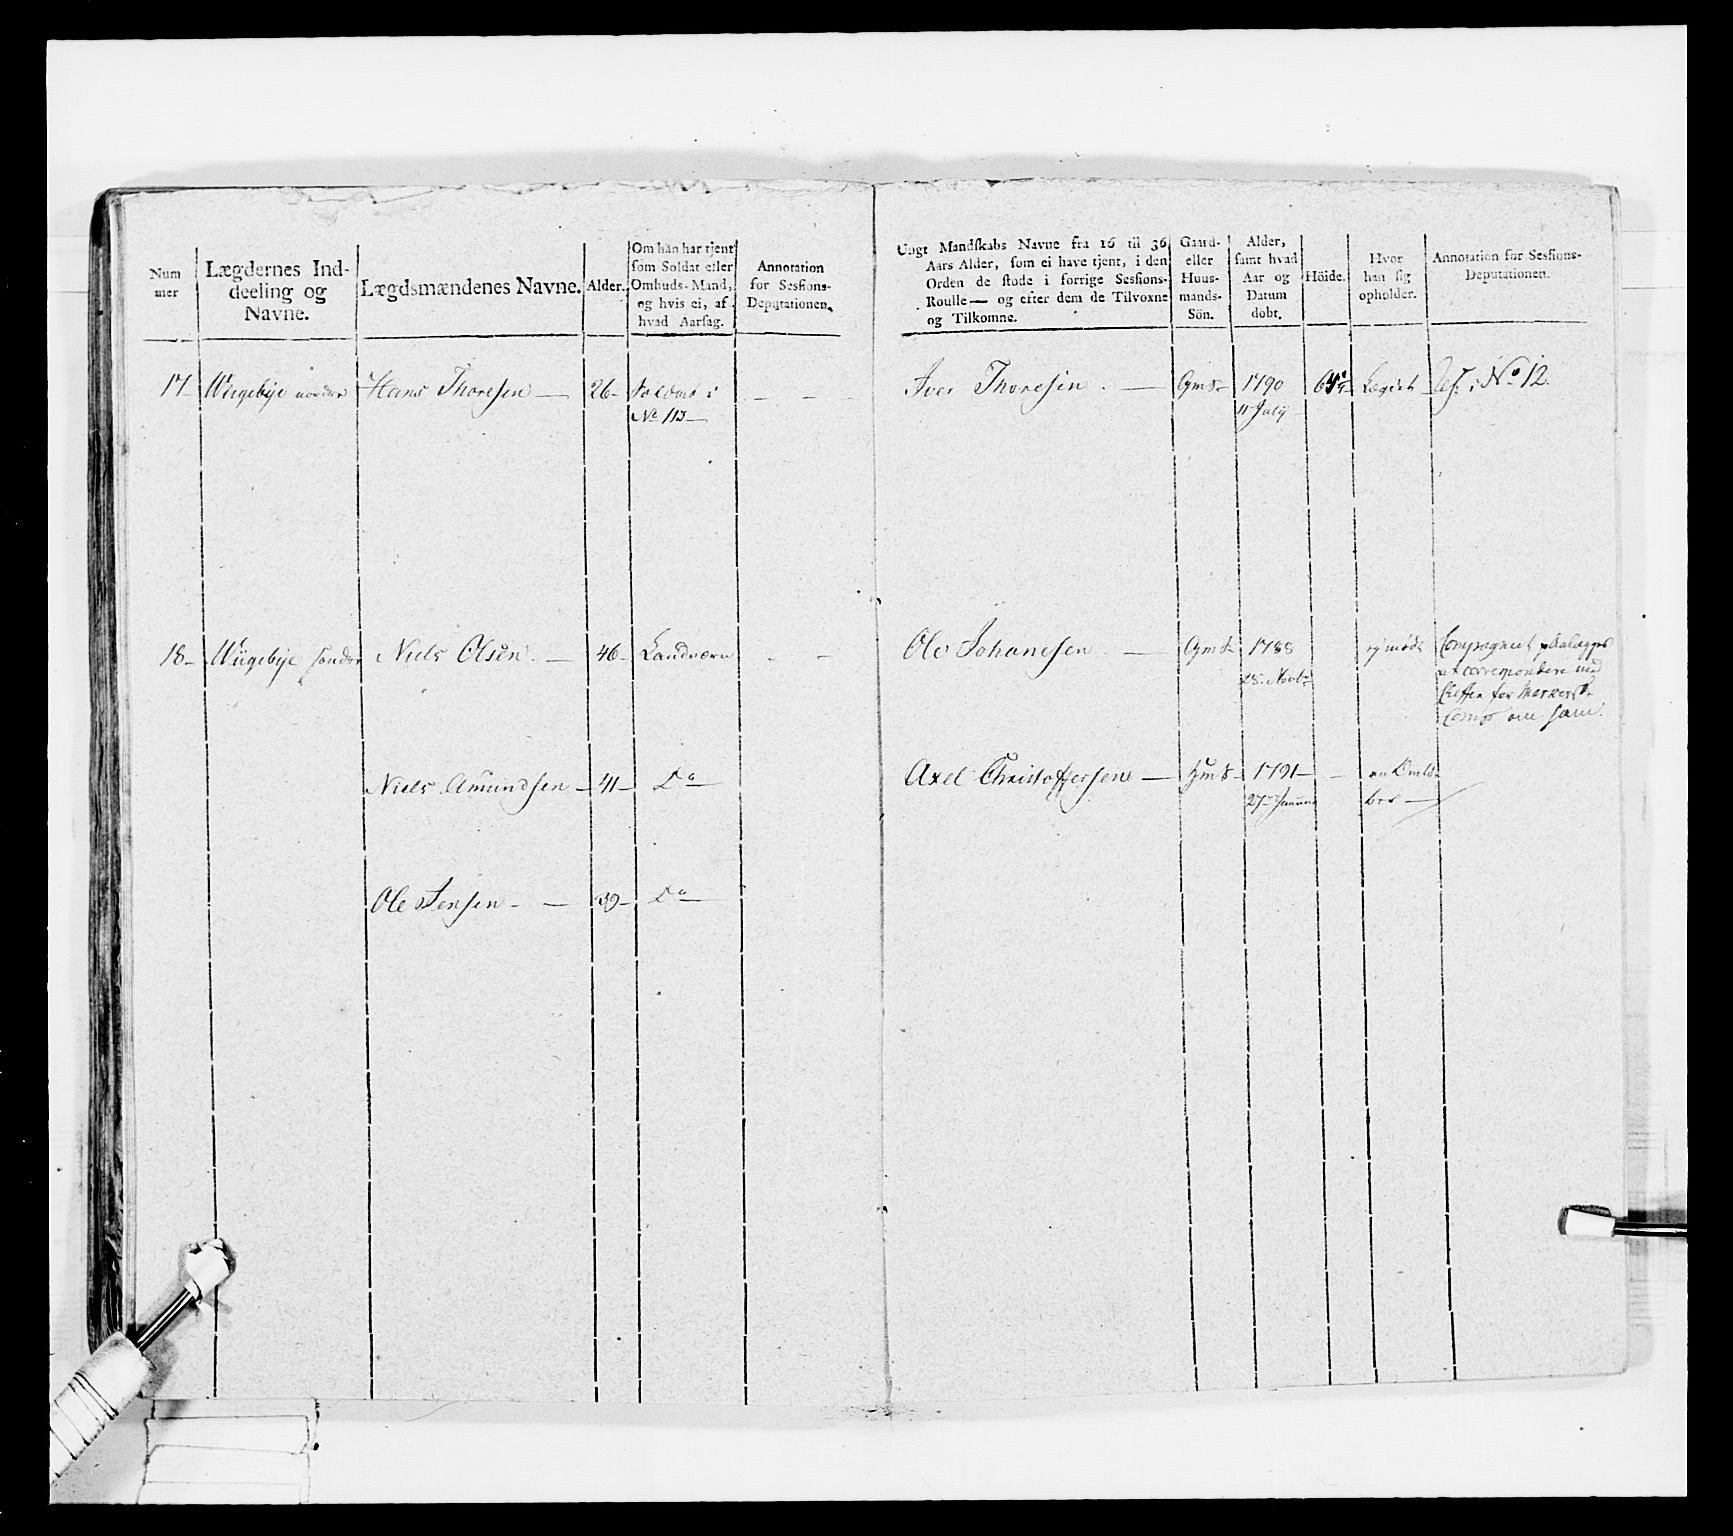 Num
mer
Lægdernes Ind-
deeling og
Navne.
Lægdsmændenes Navne.
Alder.
Om han har tjent
som Soldat eller
Ombuds-Mand,
og hvis ei, af
hvad Aarsag.
Annotation
for Sessions-
Deputationen.
Ungt Mandskabs Navne fra 16 til 36
Aars Alder, som ei have tjent, i den
Orden de stode i forrige Sessions-
Roulle — og efter dem de Tilvoxne
og Tilkomne.
Gaard-
eller
Huus-
mands-
Sön.
Alder,
samt hvad
Aar og
Datum
dobt.
Höide.
Hvor
han sig
opholder.
Annotation for Sessions-
Deputationen.
17 Wiigebye nordre Hans Thoresen — 26 Soldat i
No 113 —
Iver Thoresen — Gms 1790 Lægdet i No 12.
11 July
18 Wiigebye søndre Niels Olsen — 46 Landværn
Ole Johanesen — Gms 1788 ej mødt Compagniet paalægges
28 Novbr at correspondere med
Cheffen for
Comp om ham.
Niels Amundsen — 41 — Do
Axel Christoffersen — Hms 1791 — —
27
Ole Jensen — 39 — Do